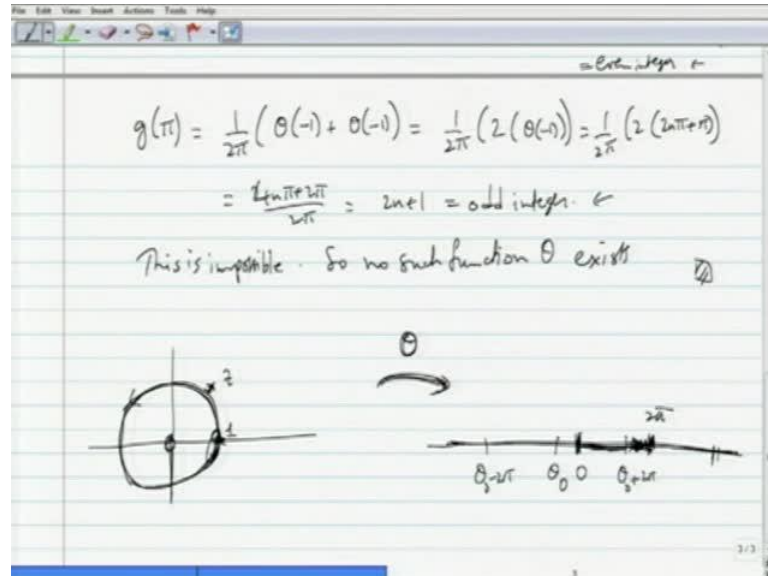 File Edit View Insert Actions Tools Help
= even integer ←
g(π) = 1/2π (θ(-1) + θ(-1)) = 1/2π (2(θ(-1))) = 1/2π (2(2nπ+π))
= 4nπ+2π/2π = 2n+1 = odd integer. ←
This is impossible. So no such function θ exists
θ
z
1
2π
θ₀-2π θ₀ 0 θ₀+2π
3/3